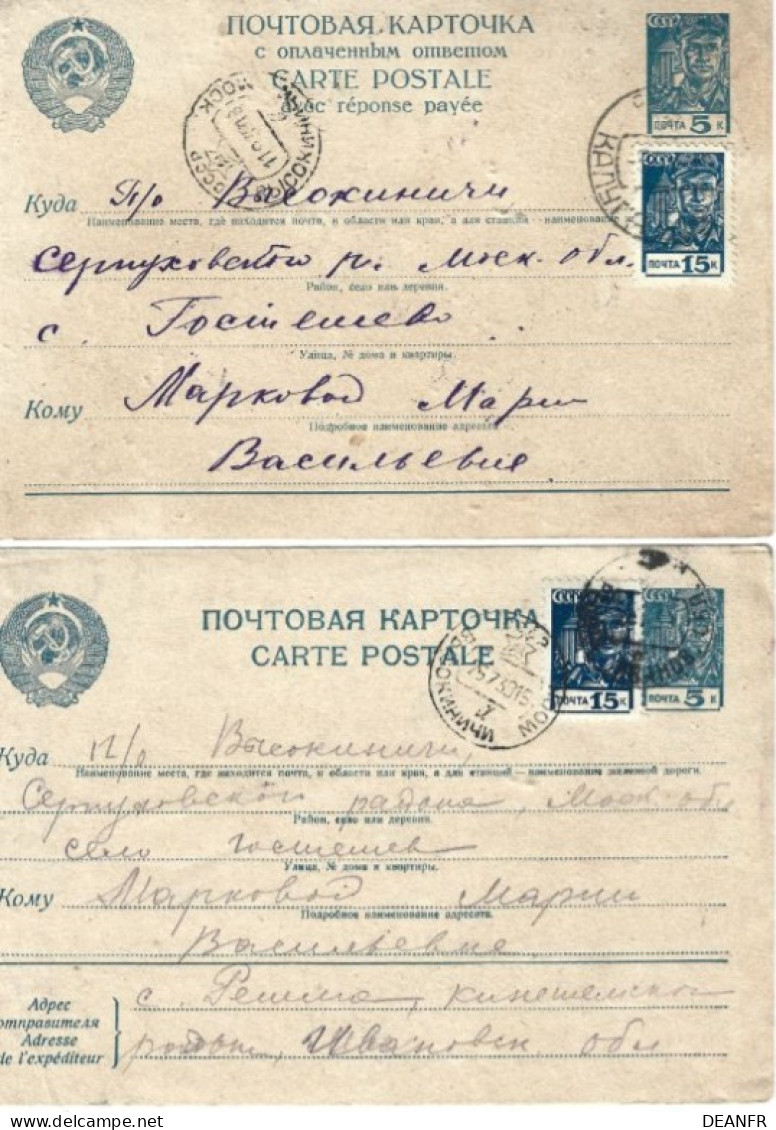 ПОЧТОВАЯ КАРТОЧКА
с оплаченным ответом
CARTE POSTALE
avec réponse payée
СССР
ПОЧТА 5 К
СССР
ПОЧТА 15 К
Куда П/о Высокиничи
Наименование места, где находится почта, и области или края, а для станций – наименование
Серпуховского р. Моск. обл.
Район, село или деревня.
с. Гостешево
Улица, № дома и квартиры.
Кому Марковой Марии
Подробное наименование адресата
Васильевне
ПОЧТОВАЯ КАРТОЧКА
CARTE POSTALE
СССР
ПОЧТА 15 К
ПОЧТА 5 К
Куда П/о Высокиничи,
Наименование места, где находится почта, и области или края, а для станций – наименование железной дороги.
Серпуховской района, Моск обл
Район, село или деревня.
село Гостешев
Улица, № дома и квартиры.
Кому Марковой Марии
Подробное наименование адресата.
Васильевне
Адрес отправителя
Adresse de l'expéditeur
с. Решма, кинешемской
район, Ивановск. обл
DEANFR